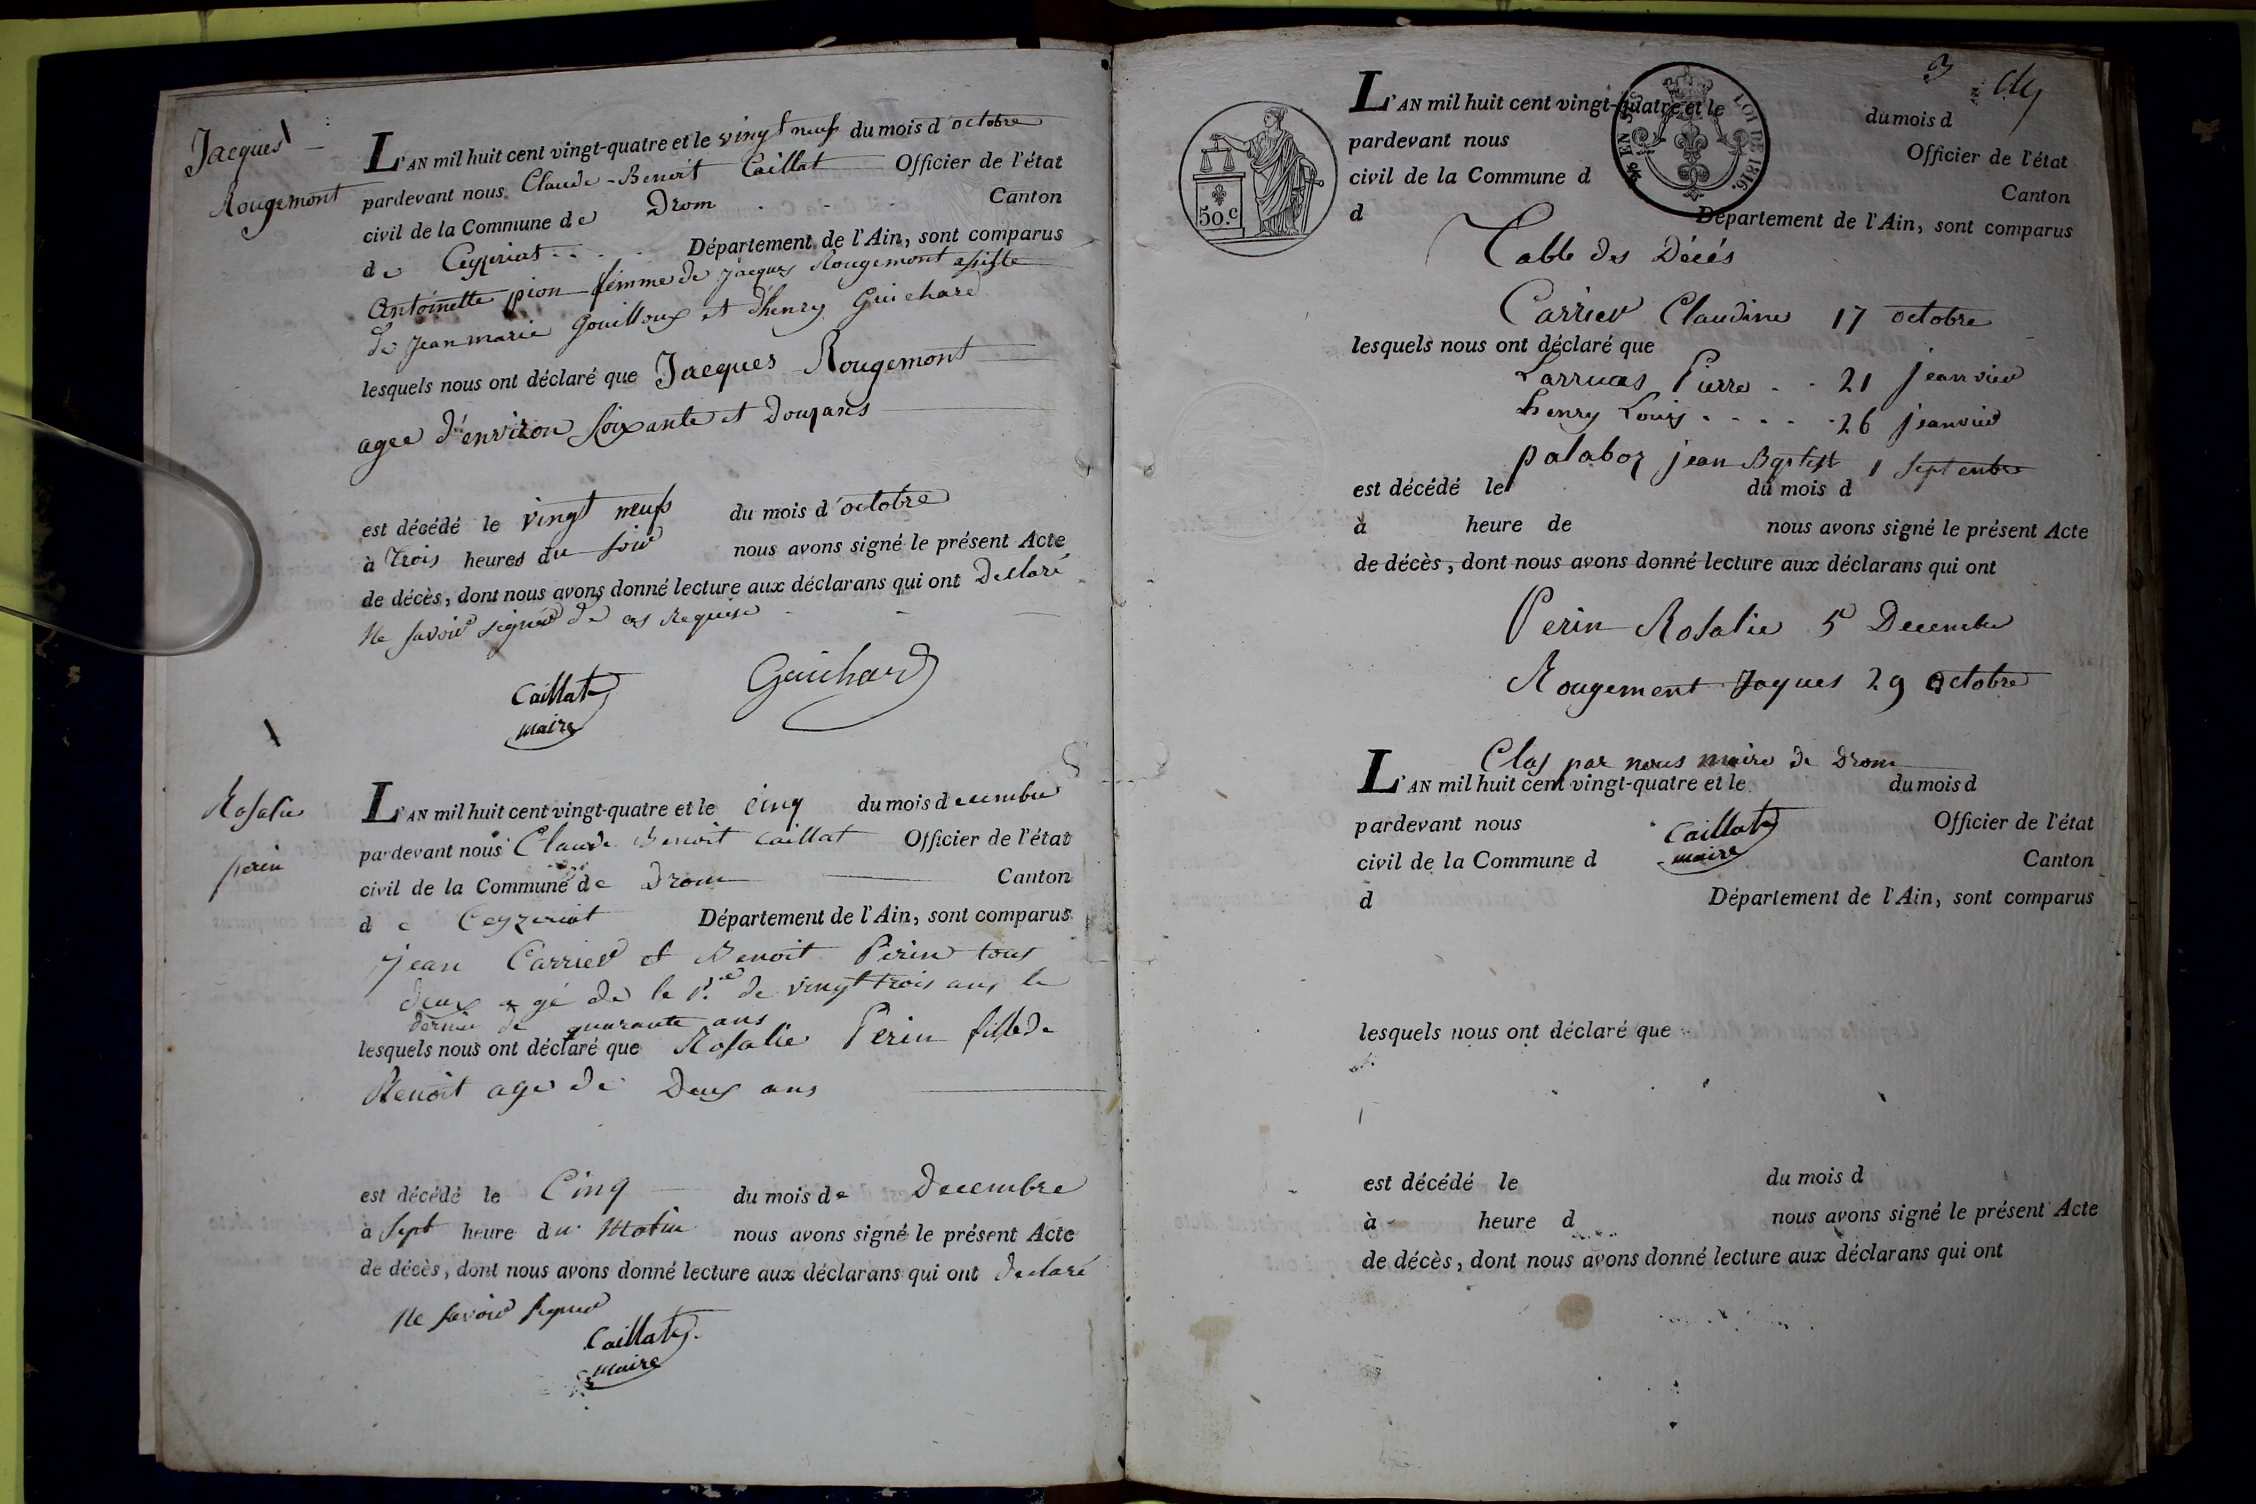 Jacques
Rougemont
L'AN mil huit cent vingt-quatre et le vingt neufs du mois d'octobre
pardevant nous Claude-Benoit Caillat Officier de l'état
civil de la Commune de Drom Canton
de Ceyzeriat Département de l'Ain, sont comparus
Antoinette pion femme de Jacques Rougemont assisté
de Jean marie Gouilloux et d'henry Guichard
lesquels nous ont déclaré que Jacques Rougemont
agee d'environ soixante et douzans
est décédé le vingt neufs du mois d'octobre
à trois heures du soir nous avons signé le présent Acte
de décès, dont nous avons donné lecture aux déclarans qui ont declaré
ne savoir signer de ces requise
Caillat Guichard
maire
Rosalie
perin
L'AN mil huit cent vingt-quatre et le cinq du mois decembre
pardevant nous Claude Benoit Caillat Officier de l'état
civil de la Commune de Drom Canton
de Ceyzeriat Département de l'Ain, sont comparus
jean Carrier et Benoit Perin tous
deux agé de le p.re de vingt trois ans, le
dernier de quarante ans
lesquels nous ont déclaré que Rosalie Perin fille de
Benoit age de Deux ans
est décédé le Cinq du mois de Decembre
à sept heure du Matin nous avons signé le présent Acte
de décès, dont nous avons donné lecture aux déclarans qui ont declaré
ne savoir signer
Caillat
maire
3
L'AN mil huit cent vingt-quatre et le du mois d
pardevant nous Officier de l'état
civil de la Commune d Canton
d Département de l'Ain, sont comparus
50.c
LOI DE 1816.
Table des Décés
Carrier Claudine 17 octobre
lesquels nous ont déclaré que
Larruas Pierre . . 21 jeanvier
henry Louis . . . . . 26 jeanvier
palaboz jean Bqstist 1 septembre
est décédé le du mois d
à heure de nous avons signé le présent Acte
de décès, dont nous avons donné lecture aux déclarans qui ont
Perin Rosalie 5 Decembre
Rougement Jaques 29 octobre
Clos par nous maire de Drom
L'AN mil huit cent vingt-quatre et le du mois d
pardevant nous Officier de l'état
Caillat
maire
civil de la Commune d Canton
d Département de l'Ain, sont comparus
lesquels nous ont déclaré que
est décédé le du mois d
à heure d nous avons signé le présent Acte
de décès, dont nous avons donné lecture aux déclarans qui ont